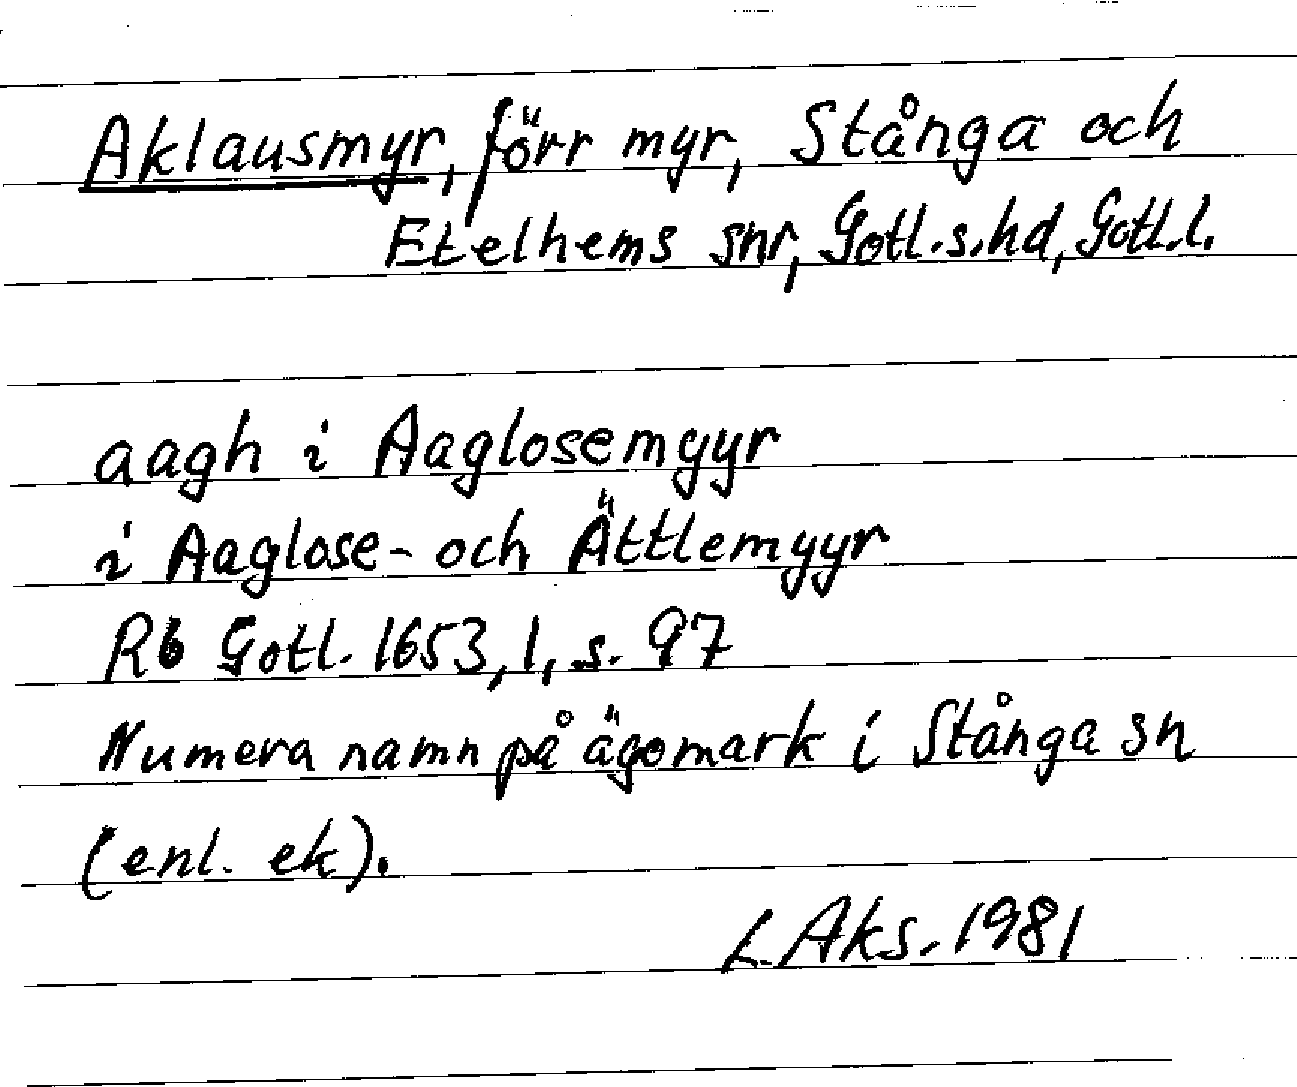 Aklausmyr, förr myr, Stånga och
Etelhems snr, Gotl.s.hd, Gotl.l.
aagh i Aaglosemyyr
i Aaglose- och Ättlemyyr
Rb Gotl. 1653, 1, s. 97
Numera namn på ägomark i Stånga sn
(enl. ek).
L. Aks. 1981